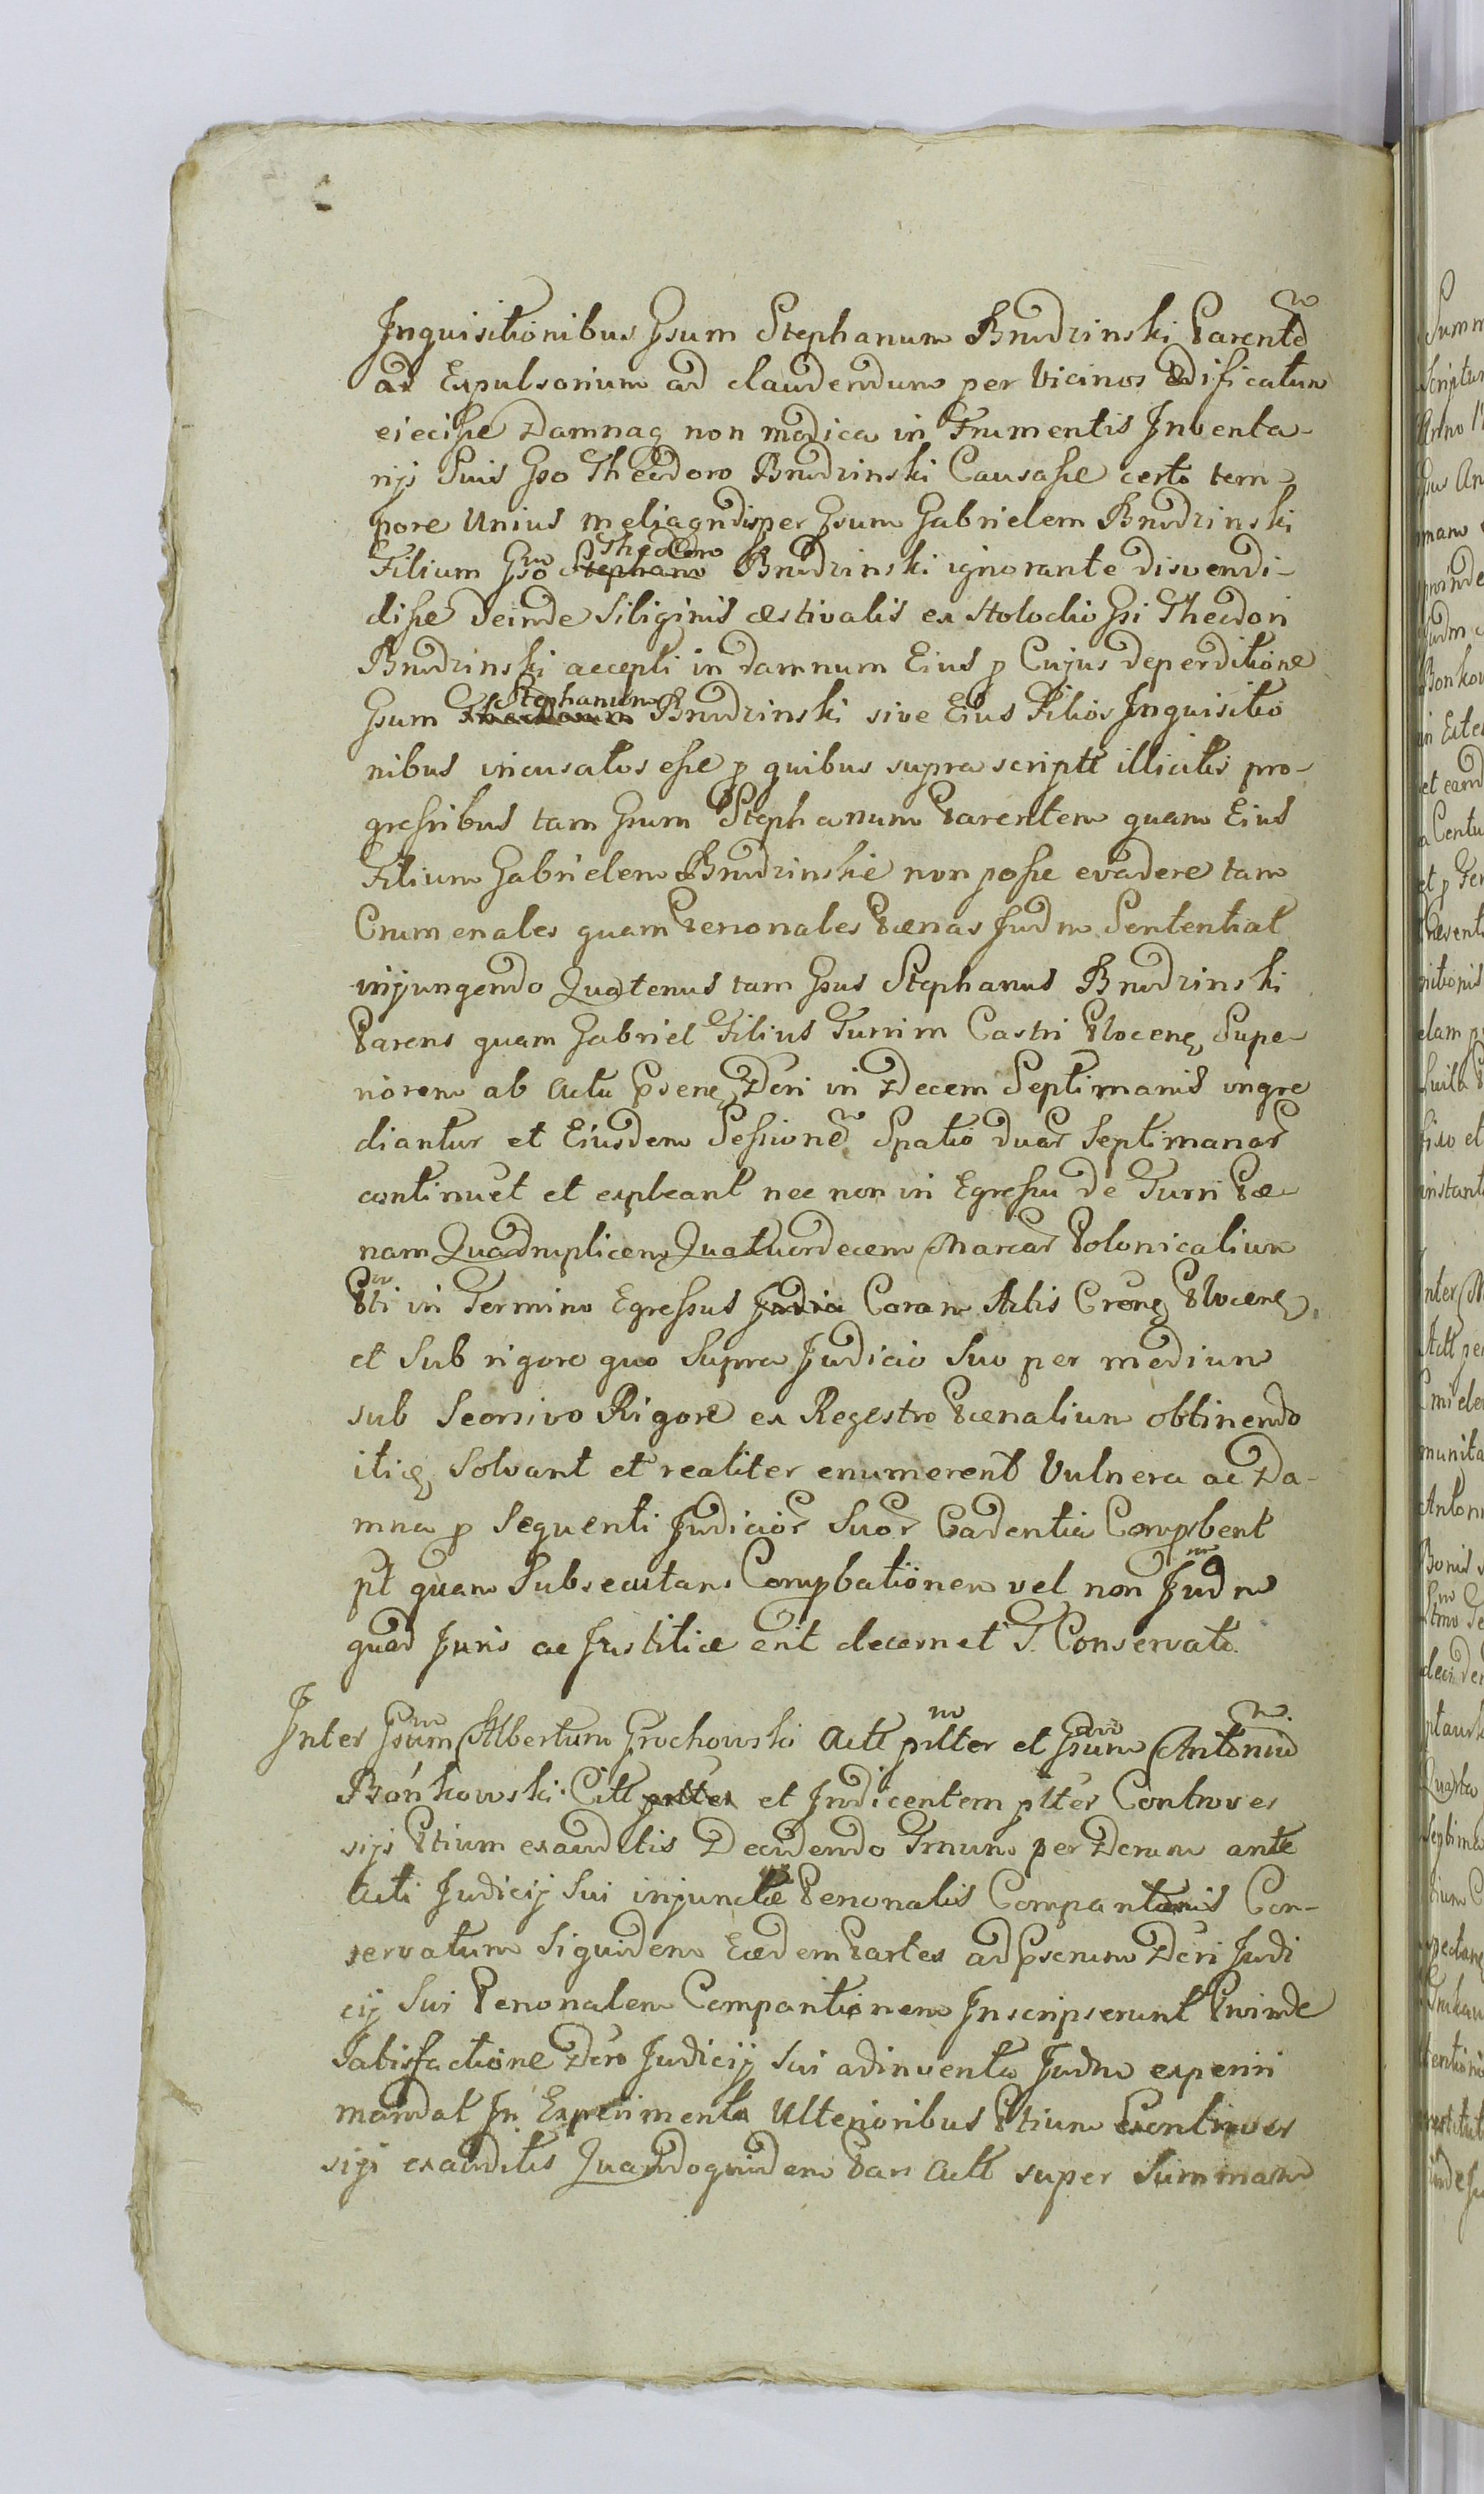 Inquisitionibus Gsum Stephanum Brudzinski Parente͠
ad Expulsorium ad claudendum per Vicinos Ædificatum
eiecisse Damnaq non modica in Frumentis Inventa-
rijs Suis Gso Theodoro Brudzinski Causasse certo tem
pore Unius per Gsum Gabrielem Brudzinski
Filium Gso Stephano Theodoro Brudzinski ignorante disvendi-
disse deinde Siliginis æstivalis ex Stodolio Gsi Theodori
Brudzinski accepti in damnum Eius p Cujus deperditione
Gsum Theodorum Stephanum Brudzinski sive Eius Filios Inquisitio
nibus incusatos esse p quibus supra scriptt illicitis pro-
gressibus tam Gsum Stephanum Parentem quam Eius
Filium Gabrielem Brudzinskie non posse evadere tam
Crimenales quam Personales Pœnas Judm Sententiat
injungendo Quatenus tam Gsus Stephanus Brudzinski
Parens quam Gabriel Filius Turrim Castri Plocens Supe
riorem ab actu Psens Dcri in Decem Septimanis ingre
diantur et Eiusdem Sessione͠ Spatio duar Septimanar
continuet et expleant nec non in Egressu de Turri Pœ
nam Quadruplicem Quatuordecem Marcar Polonicalium
Pti in Termino Egressus Judia Coram Actis Crens Plocens
et Sub rigore quo Supra Judicio Suo per medium
sub Seorsivo Rigore ex Regestro Pœnalium obtinendo
itiq Solvant et realiter enumerent Vulnera ac Da-
mna p Sequenti Judicior Suor Cadentia Compbent
pt quam Subsecutam Compbationem vel non Judm
quod Juris ac Justitiæ erit decernet T. Conservato
Inter Gsum Albertum Grochowski Actt pltter et Gsum Antoniu͠
Bońkowski Citt pltter et Indicentem plter Controver
sijs Ptium exauditis Decidendo Trnum per Dcrum ante
Acti Judicij Sui injunctæ Personalis Comparitionis Con-
servatum Siquidem Eædem Partes ad Psens Dcri Judi
cij Sui Personalem Comparitionem Inscripserunt Proinde
Satisfactione Dcro Judicij Sui adinventa Judm experiri
mandat In Experimento Ulterioribus Ptium Controver
sijs exauditis Quandoquidem Pars Actt super Summam